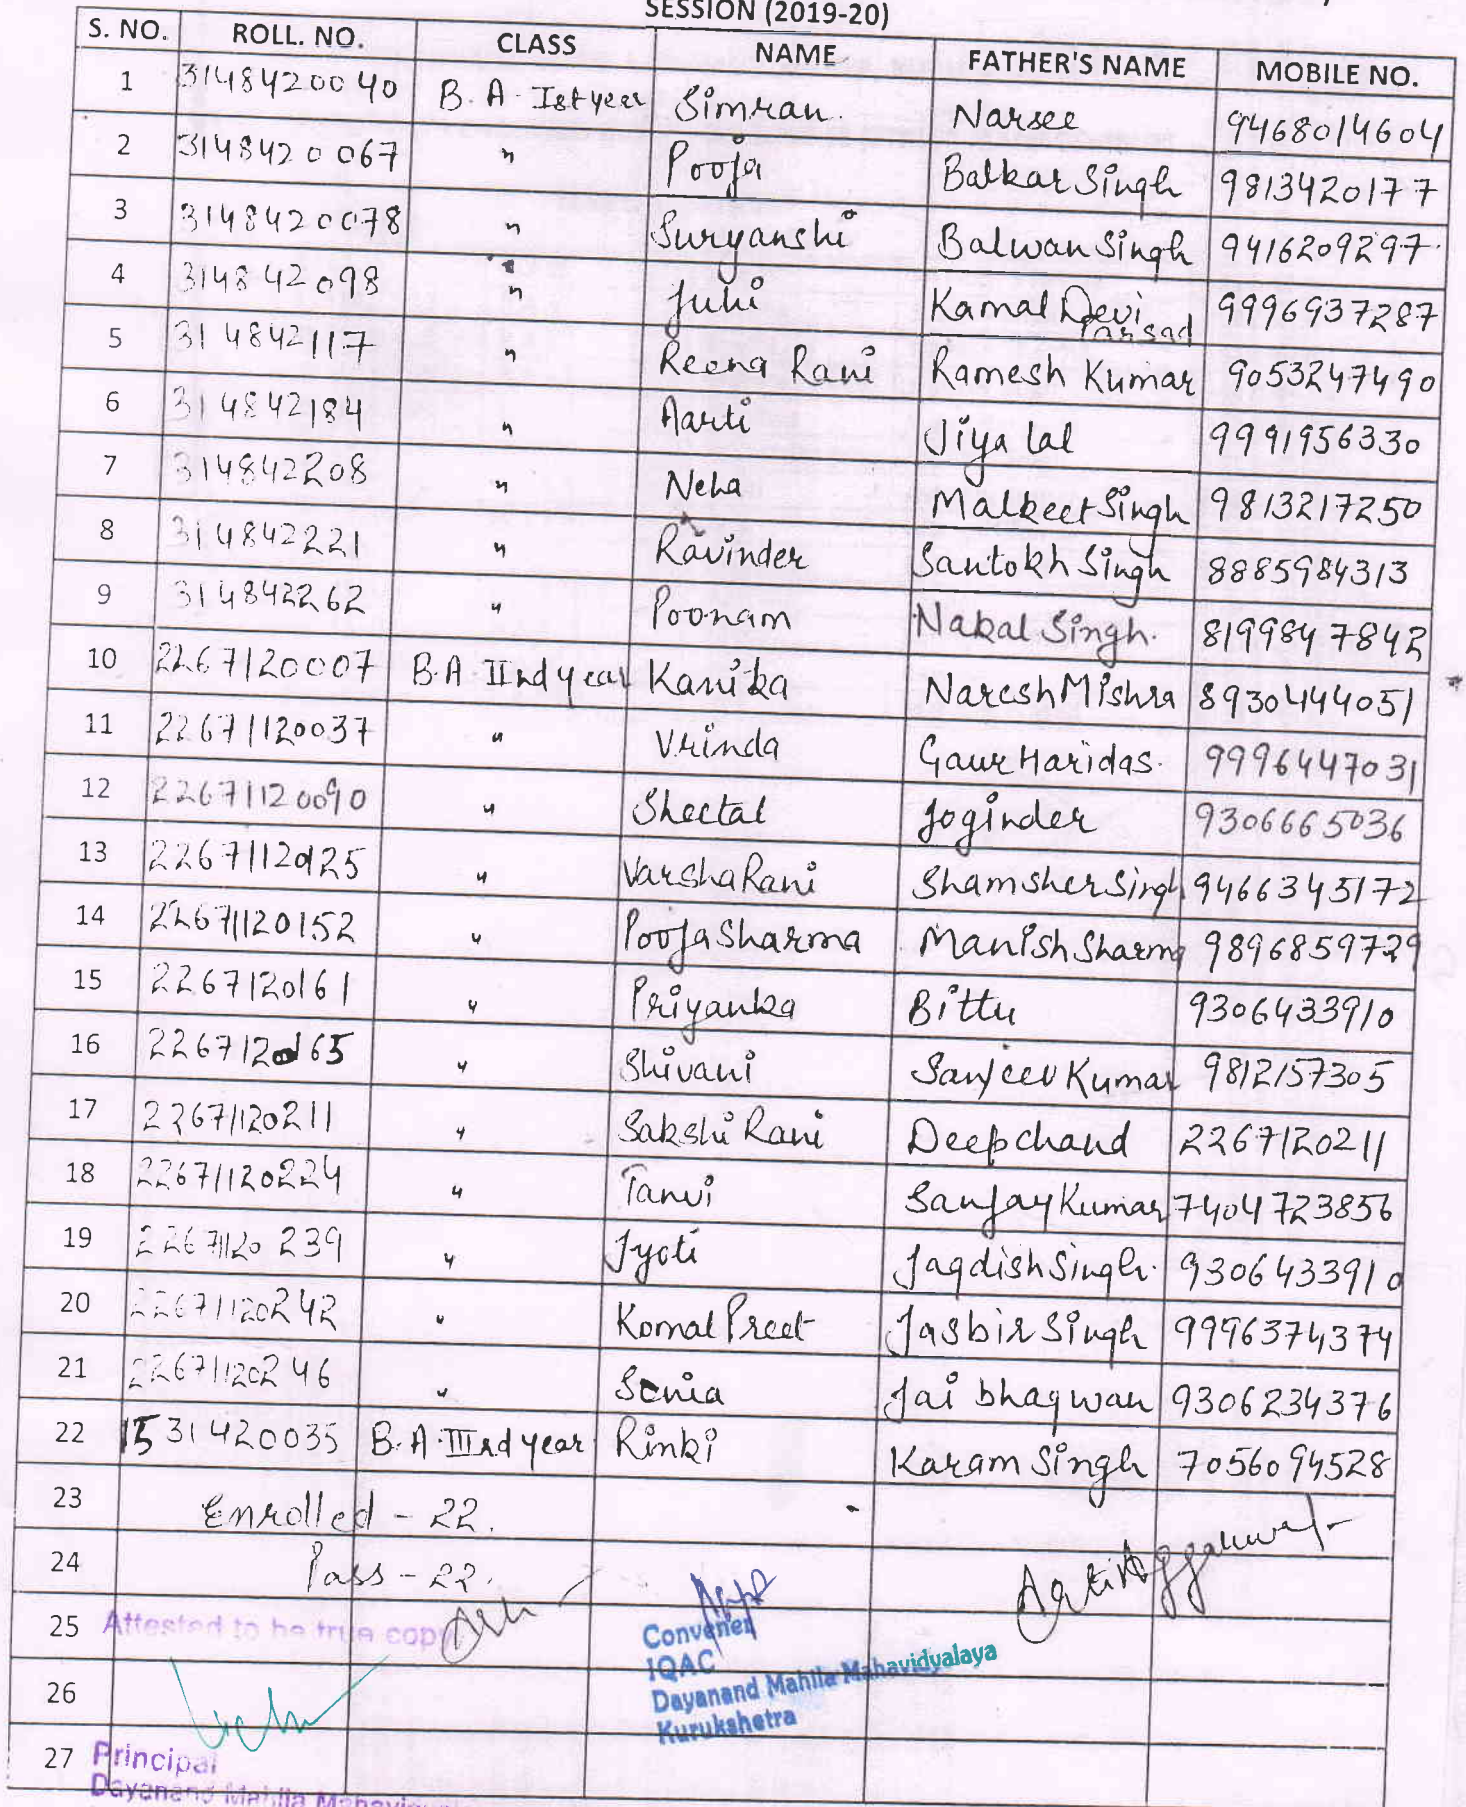 SESSION (2019-20)
S. NO. ROLL. NO. CLASS NAME FATHER'S NAME MOBILE NO.
1 3148420040 B.A. Ist year Simran. Narsee 9468014604
2 3148420067 " Pooja Balkar Singh 9813420177
3 3148420078 " Suryanshi Balwan Singh 9416209297
4 314842098 " Juhi Kamal Devi Parsad 9996937287
5 314842117 " Reena Rani Ramesh Kumar 9053247490
6 314842184 " Aarti Jiya lal 9991956330
7 314842208 " Neha Malkeet Singh 9813217250
8 314842221 " Ravinder Santokh Singh 8885984313
9 314842262 " Poonam Nakal Singh. 8199847842
10 2267120007 B.A IInd year Kanika Naresh Mishra 8930444051
11 22671120037 " Vrinda Gaur Haridas. 9996447031
12 22671120090 " Sheetal Joginder 9306665036
13 22671120125 " Varsha Rani Shamsher Singh 9466345172
14 22671120152 " Pooja Sharma Manish Sharma 9896859729
15 2267120161 " Priyanka Bittu 9306433910
16 2267120165 " Shivani Sanjeev Kumar 9812157305
17 22671120211 " Sakshi Rani Deepchand 2267120211
18 22671120224 " Tanvi Sanjay Kumar 7404723856
19 22671120239 " Jyoti Jagdish Singh. 9306433910
20 22671120242 " Komal Preet Jasbir Singh 9996374374
21 22671120246 " Sonia Jai bhagwan 9306234376
22 1531420035 B.A. IIIrd year Rinki Karam Singh 7056094528
23 Enrolled - 22.
24 Pass - 22.
Aarti Aggarwal
25 Attested to be true copy
Convener
IQAC
Dayanand Mahila Mahavidyalaya
Kurukshetra
26
27 Principal
Dayanand Mahila